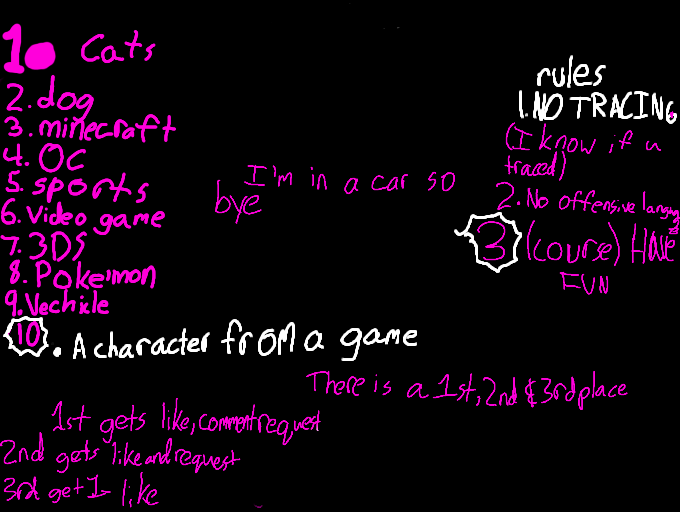 1. Cats
2. dog
3. minecraft
4. OC
5. sports
6. Video game
7. 3DS
8. Pokemon
9. Vechicle
10. A character from a game
I'm in a car so
bye
rules
1. NO TRACING
(I know if u
traced)
2. No offensive language
3 (course) HAVE
FUN
There is a 1st, 2nd & 3rd place
1st gets like, comment request
2nd gets like and request
3rd get 1 like